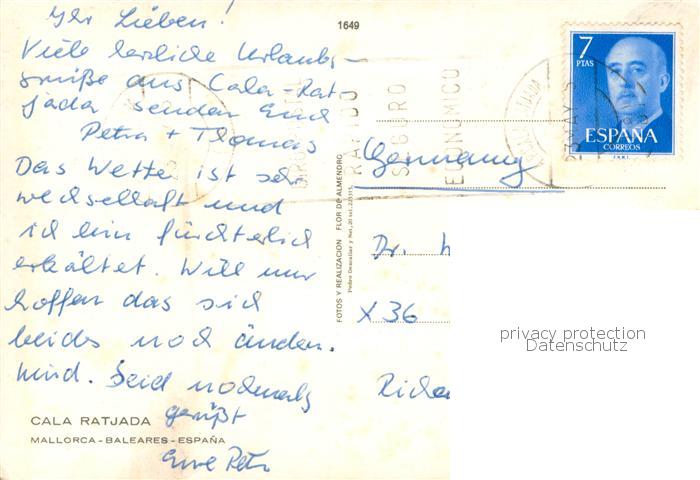 Ihr Lieben!
Viele herzliche Urlaubs-
grüße aus Cala-Rat-
jada senden Euch
Petra + Thomas
Das Wetter ist sehr
wechselhaft und
ich bin fürchterlich
erkältet. Will nur
hoffen das sich
beides noch ändern
wird. Seid nochmals
gegrüßt
Eure Petra
CALA RATJADA
MALLORCA - BALEARES - ESPAÑA
1649
FOTOS Y REALIZACION FLOR DE ALMENDRO
RAPIDO
SEGURO
ECONOMICO
7
PTAS
ESPAÑA
CORREOS
Germany
Dr.
X 36
privacy protection
Datenschutz